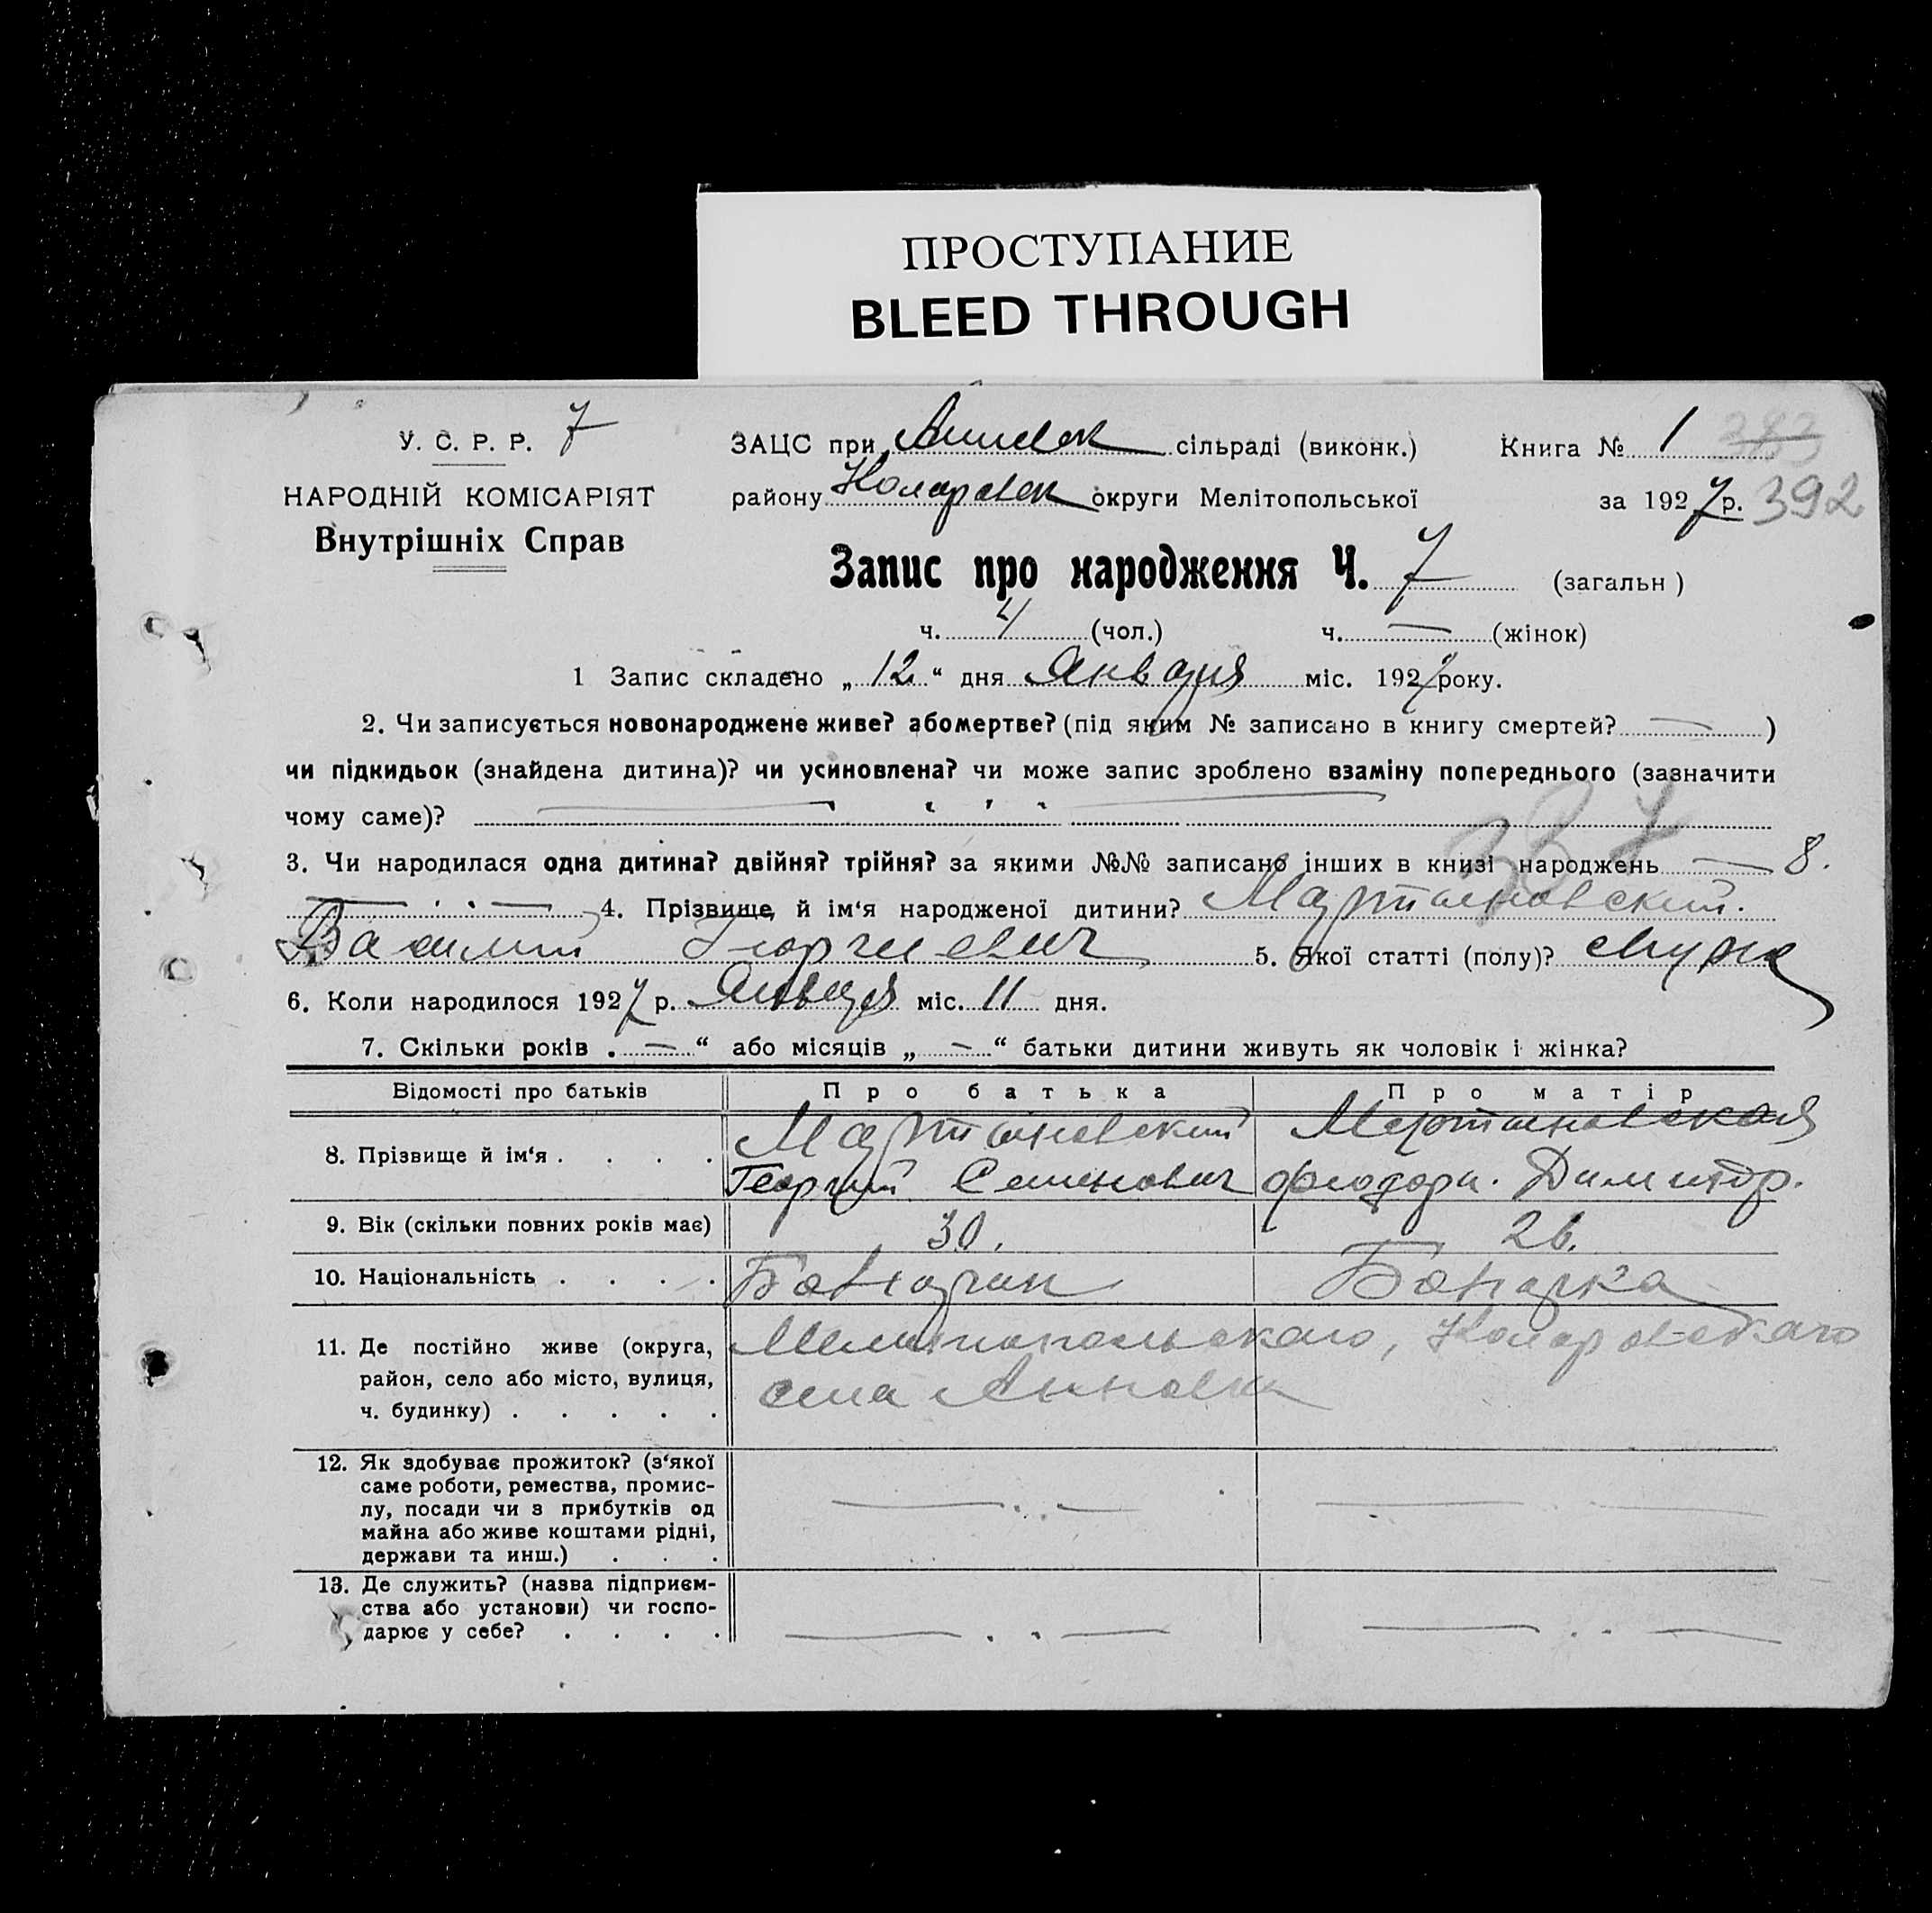 ПРОСТУПАНИЕ
BLEED THROUGH
У. С. Р. Р. 7
ЗАЦС при Аннов сільраді (виконк.) Книга № 1
НАРОДНІЙ КОМІСАРІЯТ
району Коларовск округи Мелітопольської за 1927 р. 392
Внутрішніх Справ
Запис про народження Ч. 7 (загальн)
ч. 4 (чол.) ч. — (жінок)
1 Запис складено „12“ дня Января міс. 1927 року.
2. Чи записується новонароджене живе? або мертве? (під яким № записано в книгу смертей? — )
чи підкидьок (знайдена дитина)? чи усиновлена? чи може запис зроблено взаміну попереднього (зазначити
чому саме)?
337
3. Чи народилася одна дитина? двійня? трійня? за якими №№ записано інших в книзі народжень — 8.
4. Прізвище й ім‘я народженої дитини? Мартыновский.
Василий Георгиевич 5. Якої статті (полу)? Мужс
6. Коли народилося 1927 р. Января міс. 11 дня.
7. Скільки років „ — “ або місяців „ — “ батьки дитини живуть як чоловік і жінка?
Відомості про батьків Про батька Про матір
8. Прізвище й ім‘я . . . . Мартыновский Мартыновская
Георгий Семенович Феодора. Димитр.
9. Вік (скільки повних років має) 30. 26.
10. Національність . . . . Болгарин Болгарка
11. Де постійно живе (округа, Мелитопольскаго, Коларовскаго
район, село або місто, вулиця, села Анновки
ч. будинку) . . . . .
12. Як здобуває прожиток? (з‘якої
саме роботи, ремества, промис-
лу, посади чи з прибутків од
майна або живе коштами рідні,
держави та инш.) . . .
13. Де служить? (назва підприєм-
ства або установи) чи госпо-
дарює у себе? . . . .